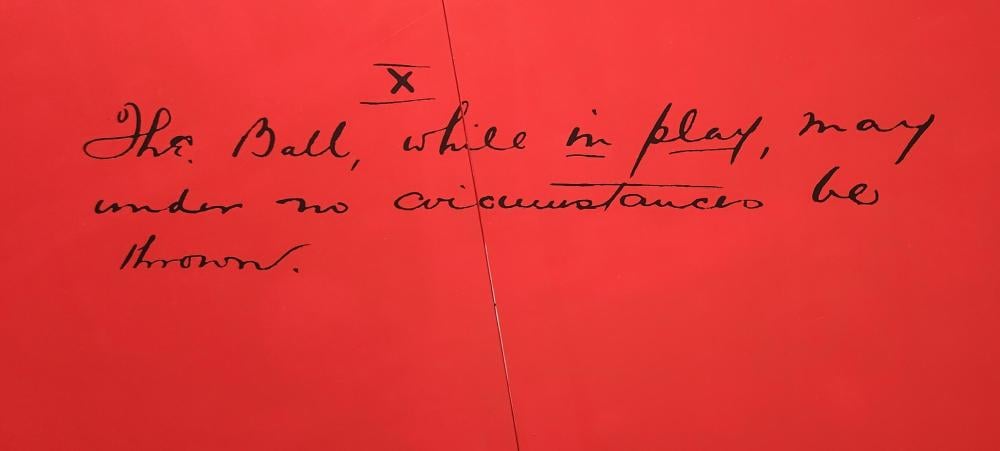 X
The Ball, while in play, may
under no circumstances be
thrown.